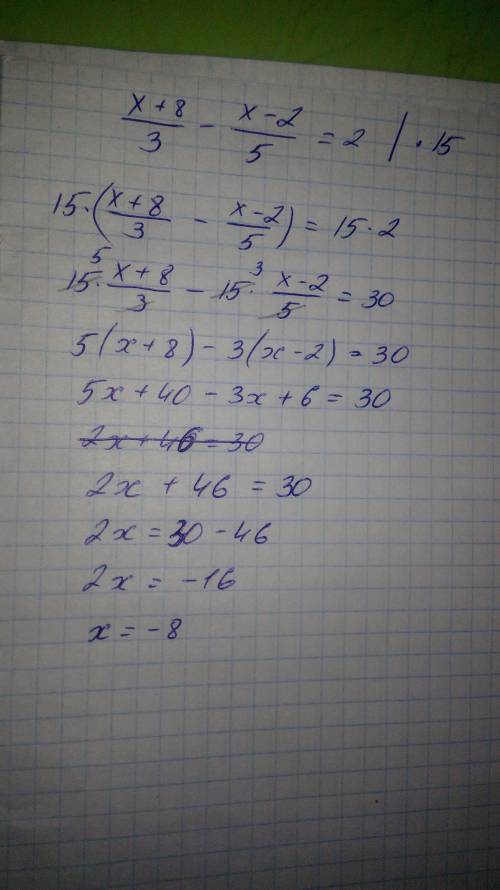 (x+8)/3 − (x−2)/5 = 2 | · 15
15·((x+8)/3 − (x−2)/5) = 15·2
15⁵·(x+8)/3 − 15³·(x−2)/5 = 30
5(x+8) − 3(x−2) = 30
5x + 40 − 3x + 6 = 30
2x + 46 = 30
2x + 46 = 30
2x = 30 − 46
2x = −16
x = −8